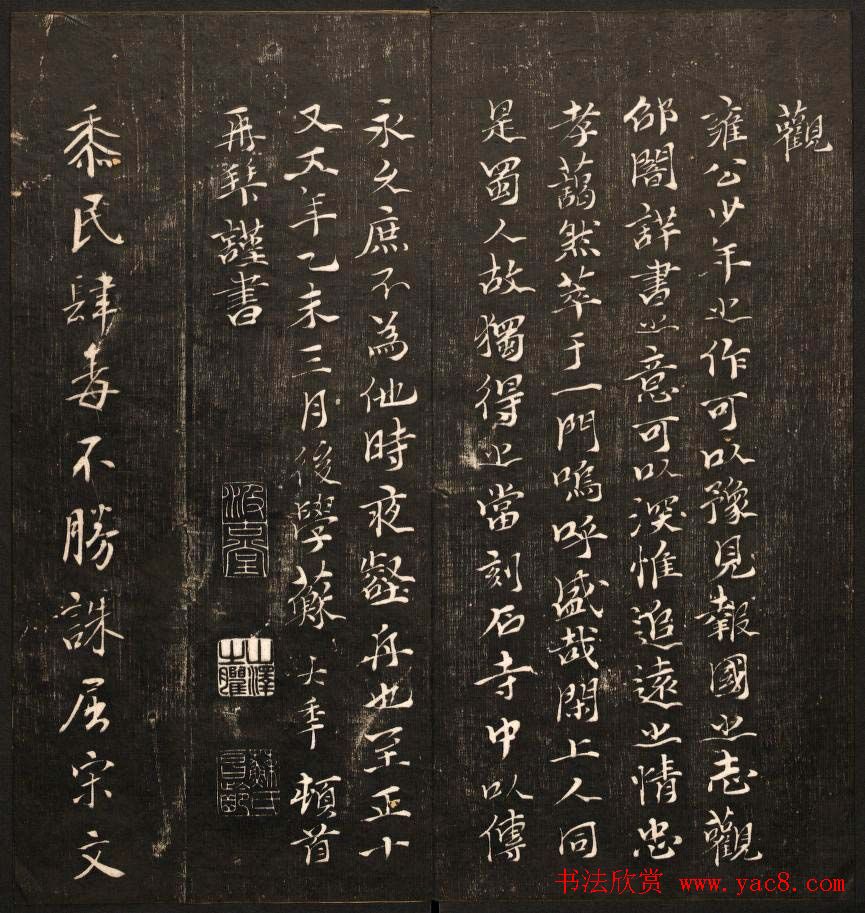 觀
雍公少年之作可以豫見報國之志觀
邵闇詳書之意可以深惟追遠之情忠
孝藹然萃于一門嗚呼盛哉閑上人同
是蜀人故獨得之當刻石寺中以傳
永久庶不為他時夜壑舟也至正十
又五年乙未三月後學蘇大年頓首
再拜謹書
山澤之臞
蘇氏昌齡
黍民肆毒不勝誅屈宋文
书法欣赏 www.yac8.com